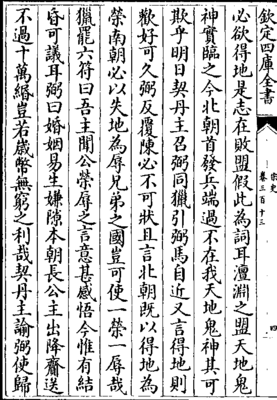 欽定四庫全書
宋史
卷三百十三
四
必欲得地是志在敗盟假此為詞耳澶淵之盟天地鬼
神實臨之今北朝首發兵端過不在我天地鬼神其可
欺乎明日契丹主召弼同獵引弼馬自近又言得地則
歡好可久弼反覆陳必不可狀且言北朝既以得地為
榮南朝必以失地為辱兄弟之國豈可使一榮一辱哉
獵罷六符曰吾主聞公榮辱之言意甚感悟今惟有結
昏可議耳弼曰婚姻易生嫌隙本朝長公主出降齎送
不過十萬緡豈若歲幣無窮之利哉契丹主諭弼使歸